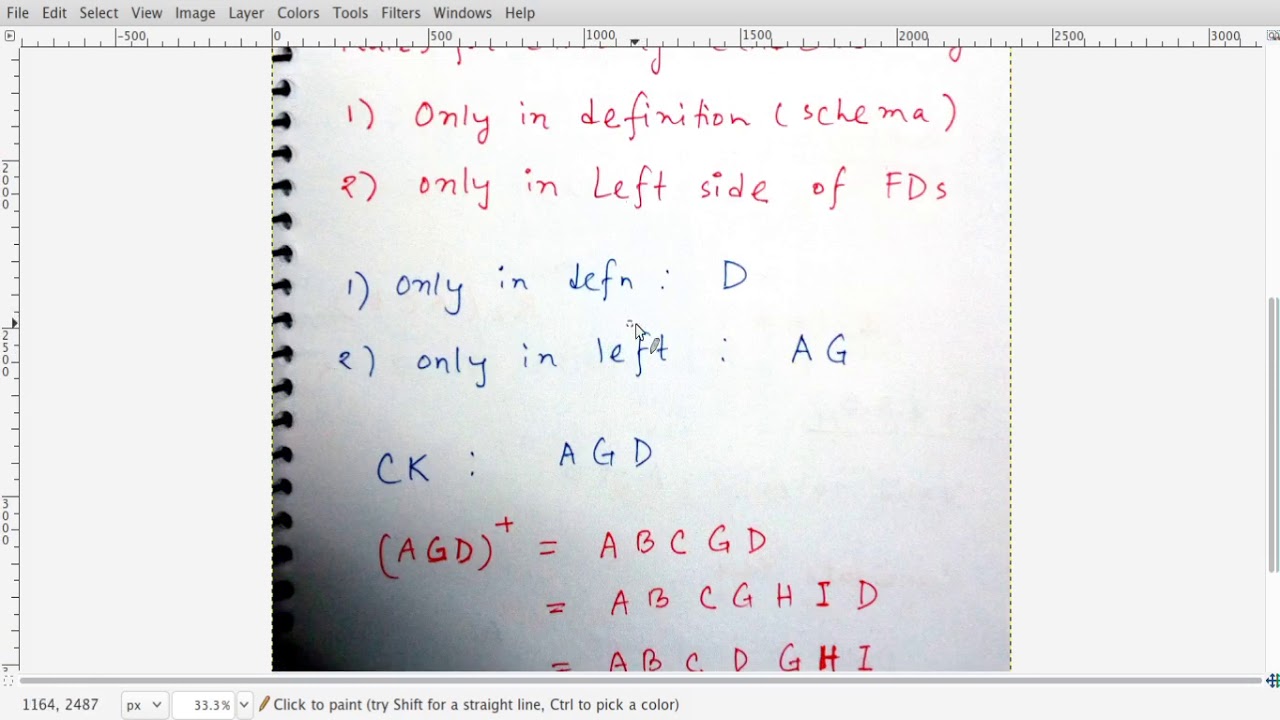 File Edit Select View Image Layer Colors Tools Filters Windows Help
-500 0 500 1000 1500 2000 2500 3000
1) Only in definition (schema)
2) only in Left side of FDs
1) only in defn : D
2) only in left : A G
CK : A G D
(AGD)+ = A B C G D
= A B C G H I D
= A B C D G H I
2000
2500
3000
1164, 2487 px 33.3% Click to paint (try Shift for a straight line, Ctrl to pick a color)